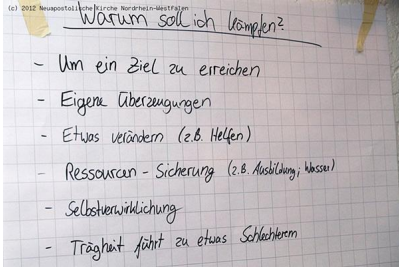 (c) 2012 Neuapostolische Kirche Nordrhein-Westfalen
Warum soll ich kämpfen?
- Um ein Ziel zu erreichen
- Eigene Überzeugungen
- Etwas verändern (z.B. Helfen)
- Ressourcen - Sicherung (z.B. Ausbildung; Wasser)
- Selbstverwirklichung
- Trägheit führt zu etwas Schlechterem